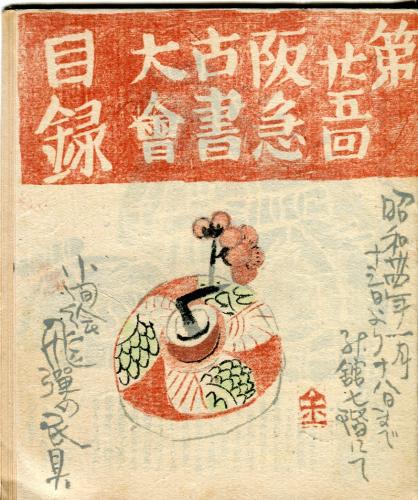 第
廿五回
阪急
古書
大會
目録
昭和廿四年一月
十三日より十八日まで
館七階にて
小間絵
飛彈の民具